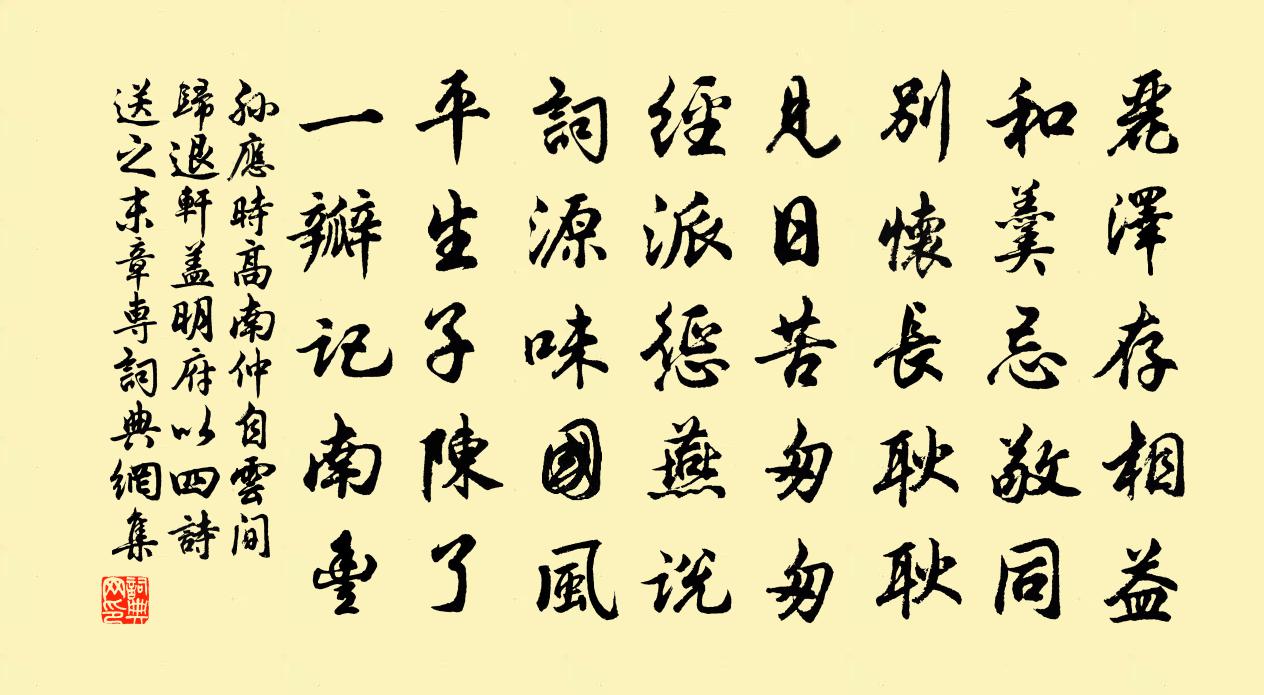 麗澤存相益
和羹忌敵同
別懷長耿耿
見日苦匆匆
經派懲燕說
詞源味國風
平生子陳子
一瓣記南豐
孫應時高南仲自雲間
歸退軒蓋明府以四詩
送之末章專詞典網集